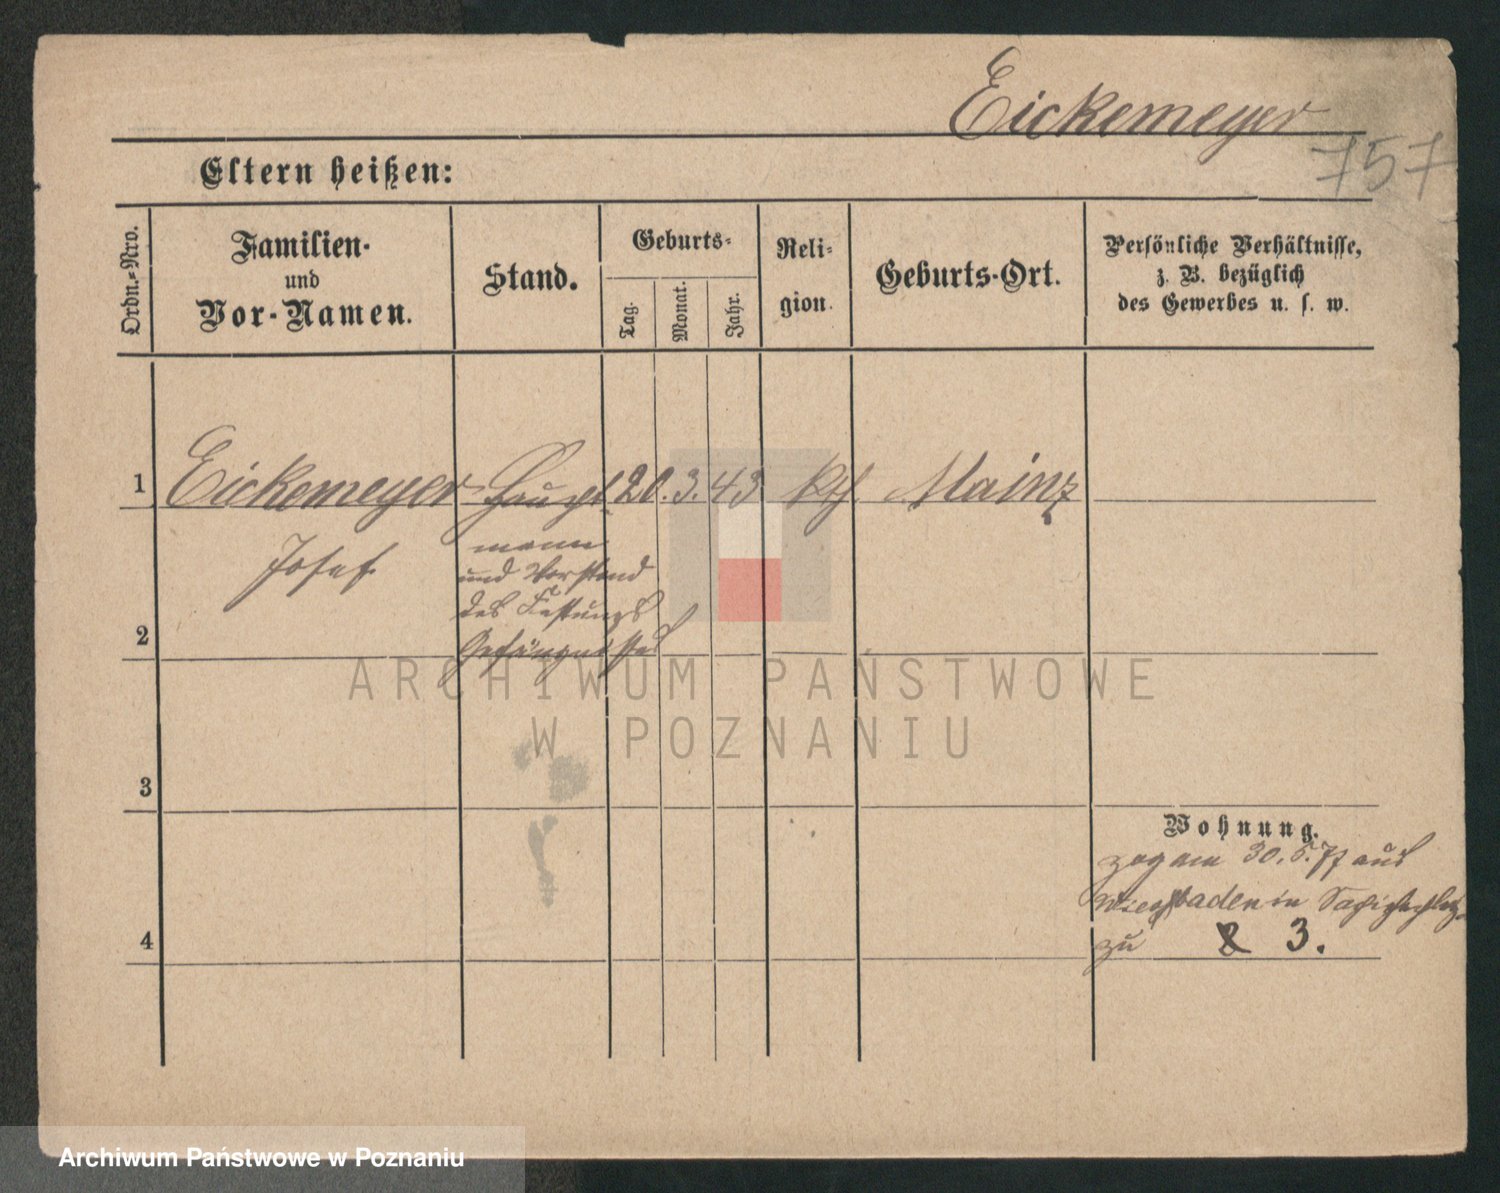 Eickemeyer
757
Eltern heißen:
Ordn.-Nro.
Familien-
und
Vor-Namen.
Stand.
Geburts-
Tag.
Monat.
Jahr.
Reli-
gion.
Geburts-Ort.
Persönliche Verhältnisse,
z. B. bezüglich
des Gewerbes u. s. w.
1 Eickemeyer Haupt- 20. 3. 43 kth. Mainz
mann
Josef
und Vorstand
des Festungs
Gefängnisses
2
ARCHIWUM PAŃSTWOWE
W POZNANIU
3
Wohnung.
zog am 30. 5. 77 aus
Wiesbaden in
zu 3.
4
Archiwum Państwowe w Poznaniu